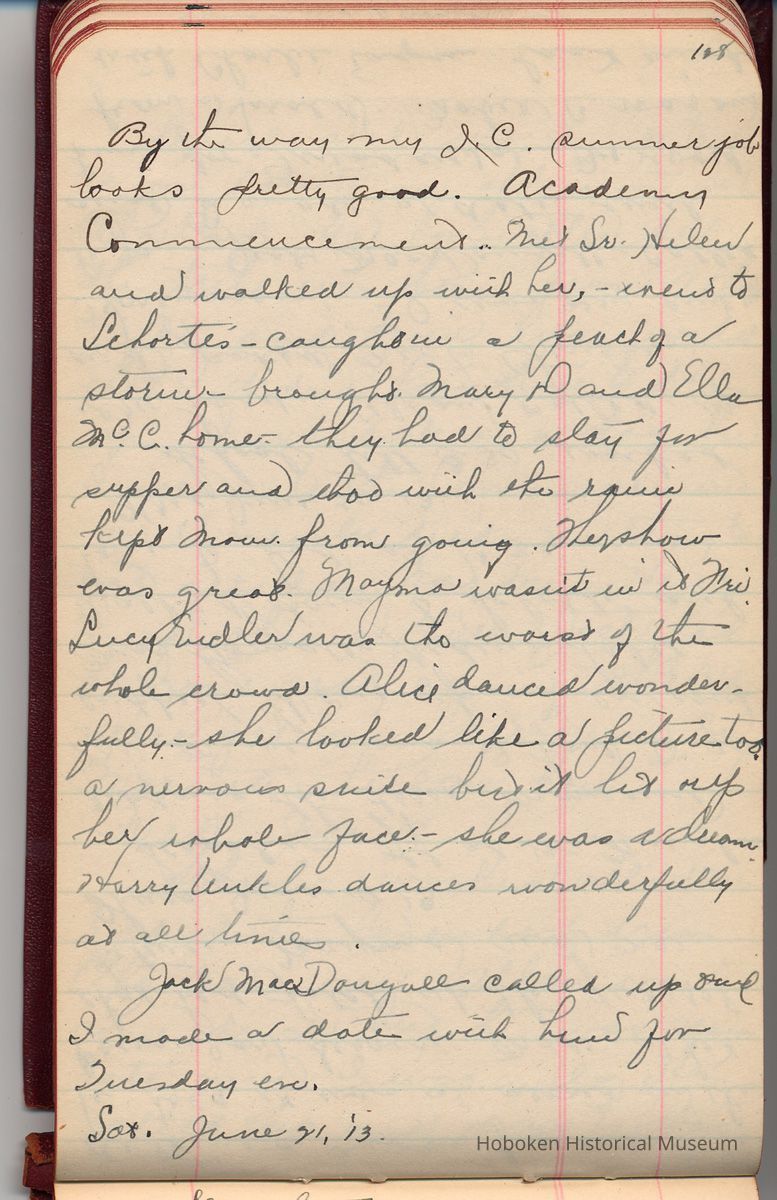 128
By the way my J.C. summer job
looks pretty good. Academy
Commencement. Met Sr. Helen
and walked up with her, - went to
Schorte's - caught in a peach of a
storm - brought Mary D and Ella
McC. home - they had to stay for
supper and shod with the rain
kept Mom. from going. The show
was great. Mayma wasn't in it Fri.
Lucy Eidler was the worst of the
whole crowd. Alice danced wonder-
fully - she looked like a picture too
a nervous smile but it lit up
her whole face - she was a dream.
Harry Unkles dances wonderfully
at all times.
Jack MacDougall called up and
I made a date with him for
Tuesday eve.
Sat. June 21, '13.
Hoboken Historical Museum